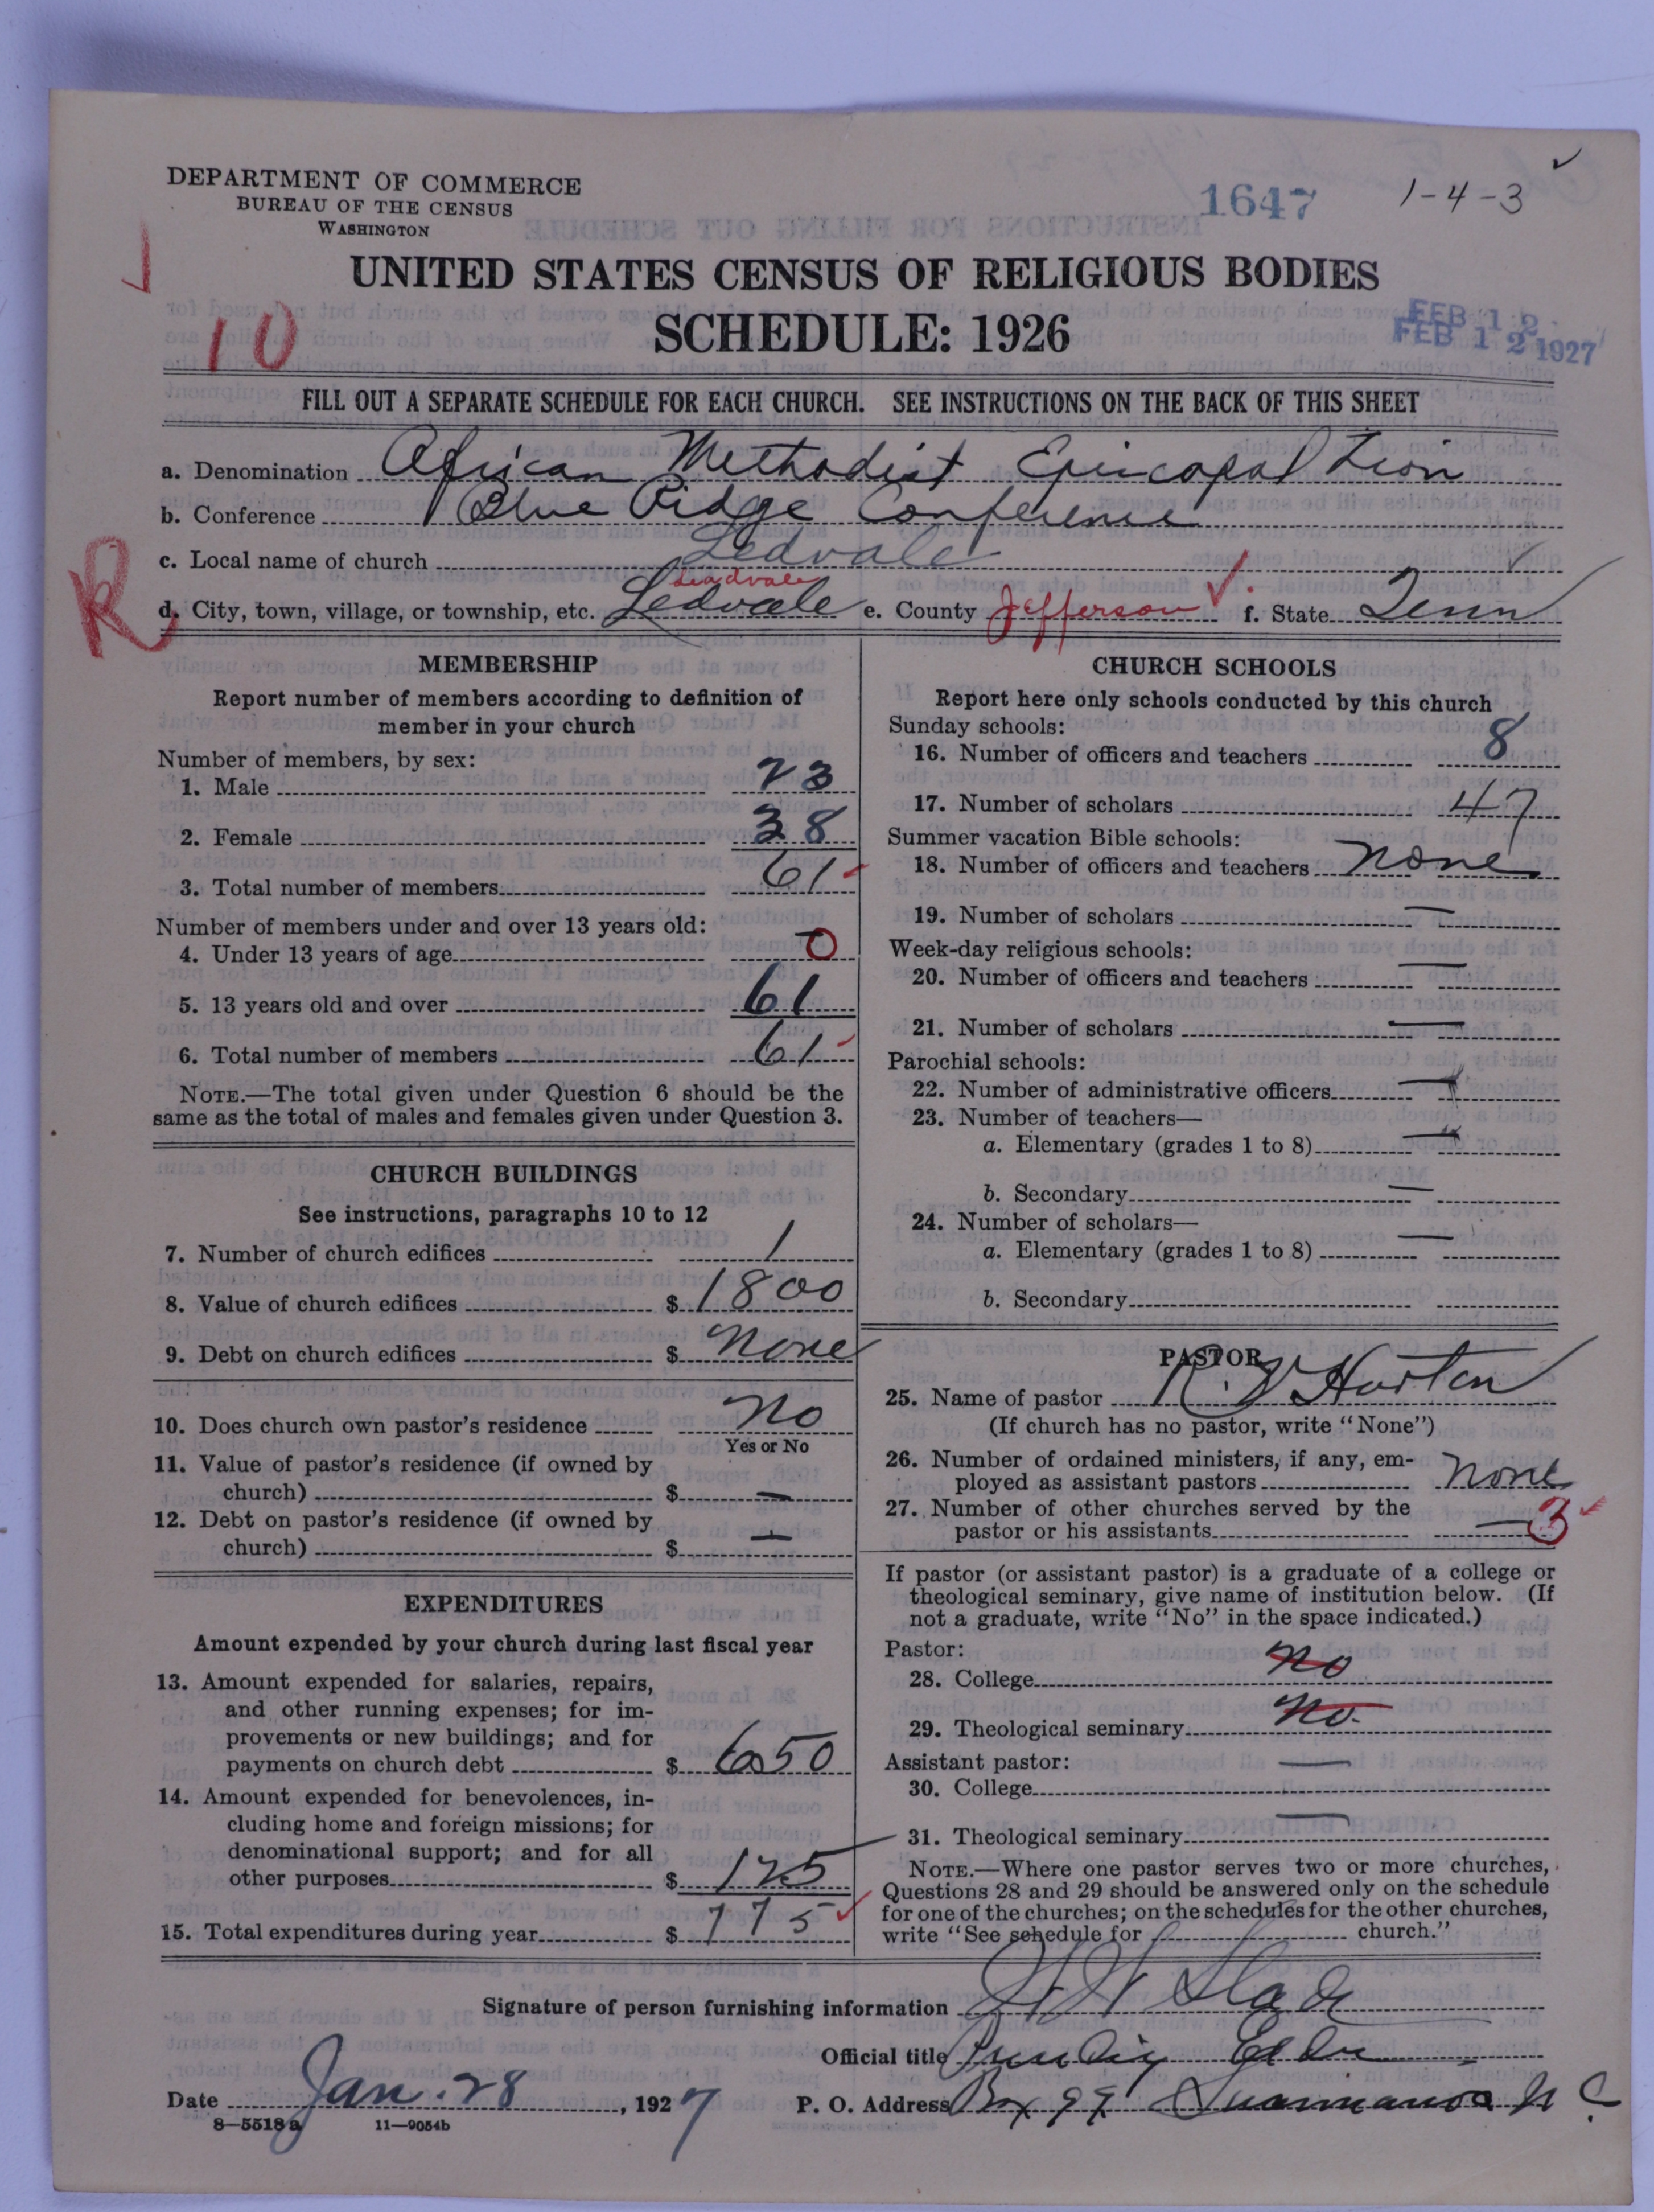 DEPARTMENT OF COMMERCE
BUREAU OF THE CENSUS
WASHINGTON
1647
1-4-3
UNITED STATES CENSUS OF RELIGIOUS BODIES
SCHEDULE: 1926
10
FEB 12
FEB 12 1927
FILL OUT A SEPARATE SCHEDULE FOR EACH CHURCH. SEE INSTRUCTIONS ON THE BACK OF THIS SHEET
a. Denomination African Methodist Episcopal Zion
b. Conference Blue Ridge Conference
c. Local name of church Ledvale
R
Leadvale
d. City, town, village, or township, etc. Ledvale e. County Jefferson f. State Tenn
MEMBERSHIP
Report number of members according to definition of
member in your church
Number of members, by sex:
1. Male 23
2. Female 38
3. Total number of members 61
Number of members under and over 13 years old:
4. Under 13 years of age 0
5. 13 years old and over 61
6. Total number of members 61
NOTE.—The total given under Question 6 should be the
same as the total of males and females given under Question 3.
CHURCH BUILDINGS
See instructions, paragraphs 10 to 12
7. Number of church edifices 1
8. Value of church edifices $ 1800
9. Debt on church edifices $ None
10. Does church own pastor's residence No
Yes or No
11. Value of pastor's residence (if owned by
church) $ —
12. Debt on pastor's residence (if owned by
church) $ —
EXPENDITURES
Amount expended by your church during last fiscal year
13. Amount expended for salaries, repairs,
and other running expenses; for im-
provements or new buildings; and for
payments on church debt $ 650
14. Amount expended for benevolences, in-
cluding home and foreign missions; for
denominational support; and for all
other purposes $ 125
15. Total expenditures during year $ 775
CHURCH SCHOOLS
Report here only schools conducted by this church
Sunday schools:
16. Number of officers and teachers 8
17. Number of scholars 47
Summer vacation Bible schools:
18. Number of officers and teachers None
19. Number of scholars —
Week-day religious schools:
20. Number of officers and teachers —
21. Number of scholars —
Parochial schools:
22. Number of administrative officers —
23. Number of teachers—
a. Elementary (grades 1 to 8) —
b. Secondary —
24. Number of scholars—
a. Elementary (grades 1 to 8) —
b. Secondary
PASTOR
25. Name of pastor R. V Horton
(If church has no pastor, write "None")
26. Number of ordained ministers, if any, em-
ployed as assistant pastors None
27. Number of other churches served by the
pastor or his assistants — 3
If pastor (or assistant pastor) is a graduate of a college or
theological seminary, give name of institution below. (If
not a graduate, write "No" in the space indicated.)
Pastor:
28. College No
29. Theological seminary No
Assistant pastor: —
30. College
31. Theological seminary —
NOTE.—Where one pastor serves two or more churches,
Questions 28 and 29 should be answered only on the schedule
for one of the churches; on the schedules for the other churches,
write "See schedule for church."
Signature of person furnishing information
Official title Elder
Date Jan. 28, 1927
P. O. Address Box 97 N C
8—5518 a 11—9054b